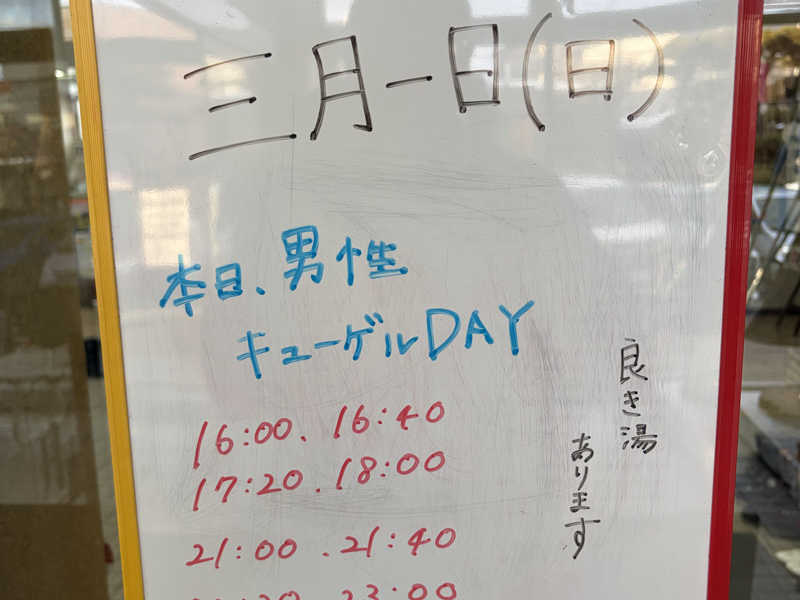 三月一日(日)
本日、男性
キューゲルDAY
16:00、16:40
17:20、18:00
21:00、21:40
23:00
良き湯
あります